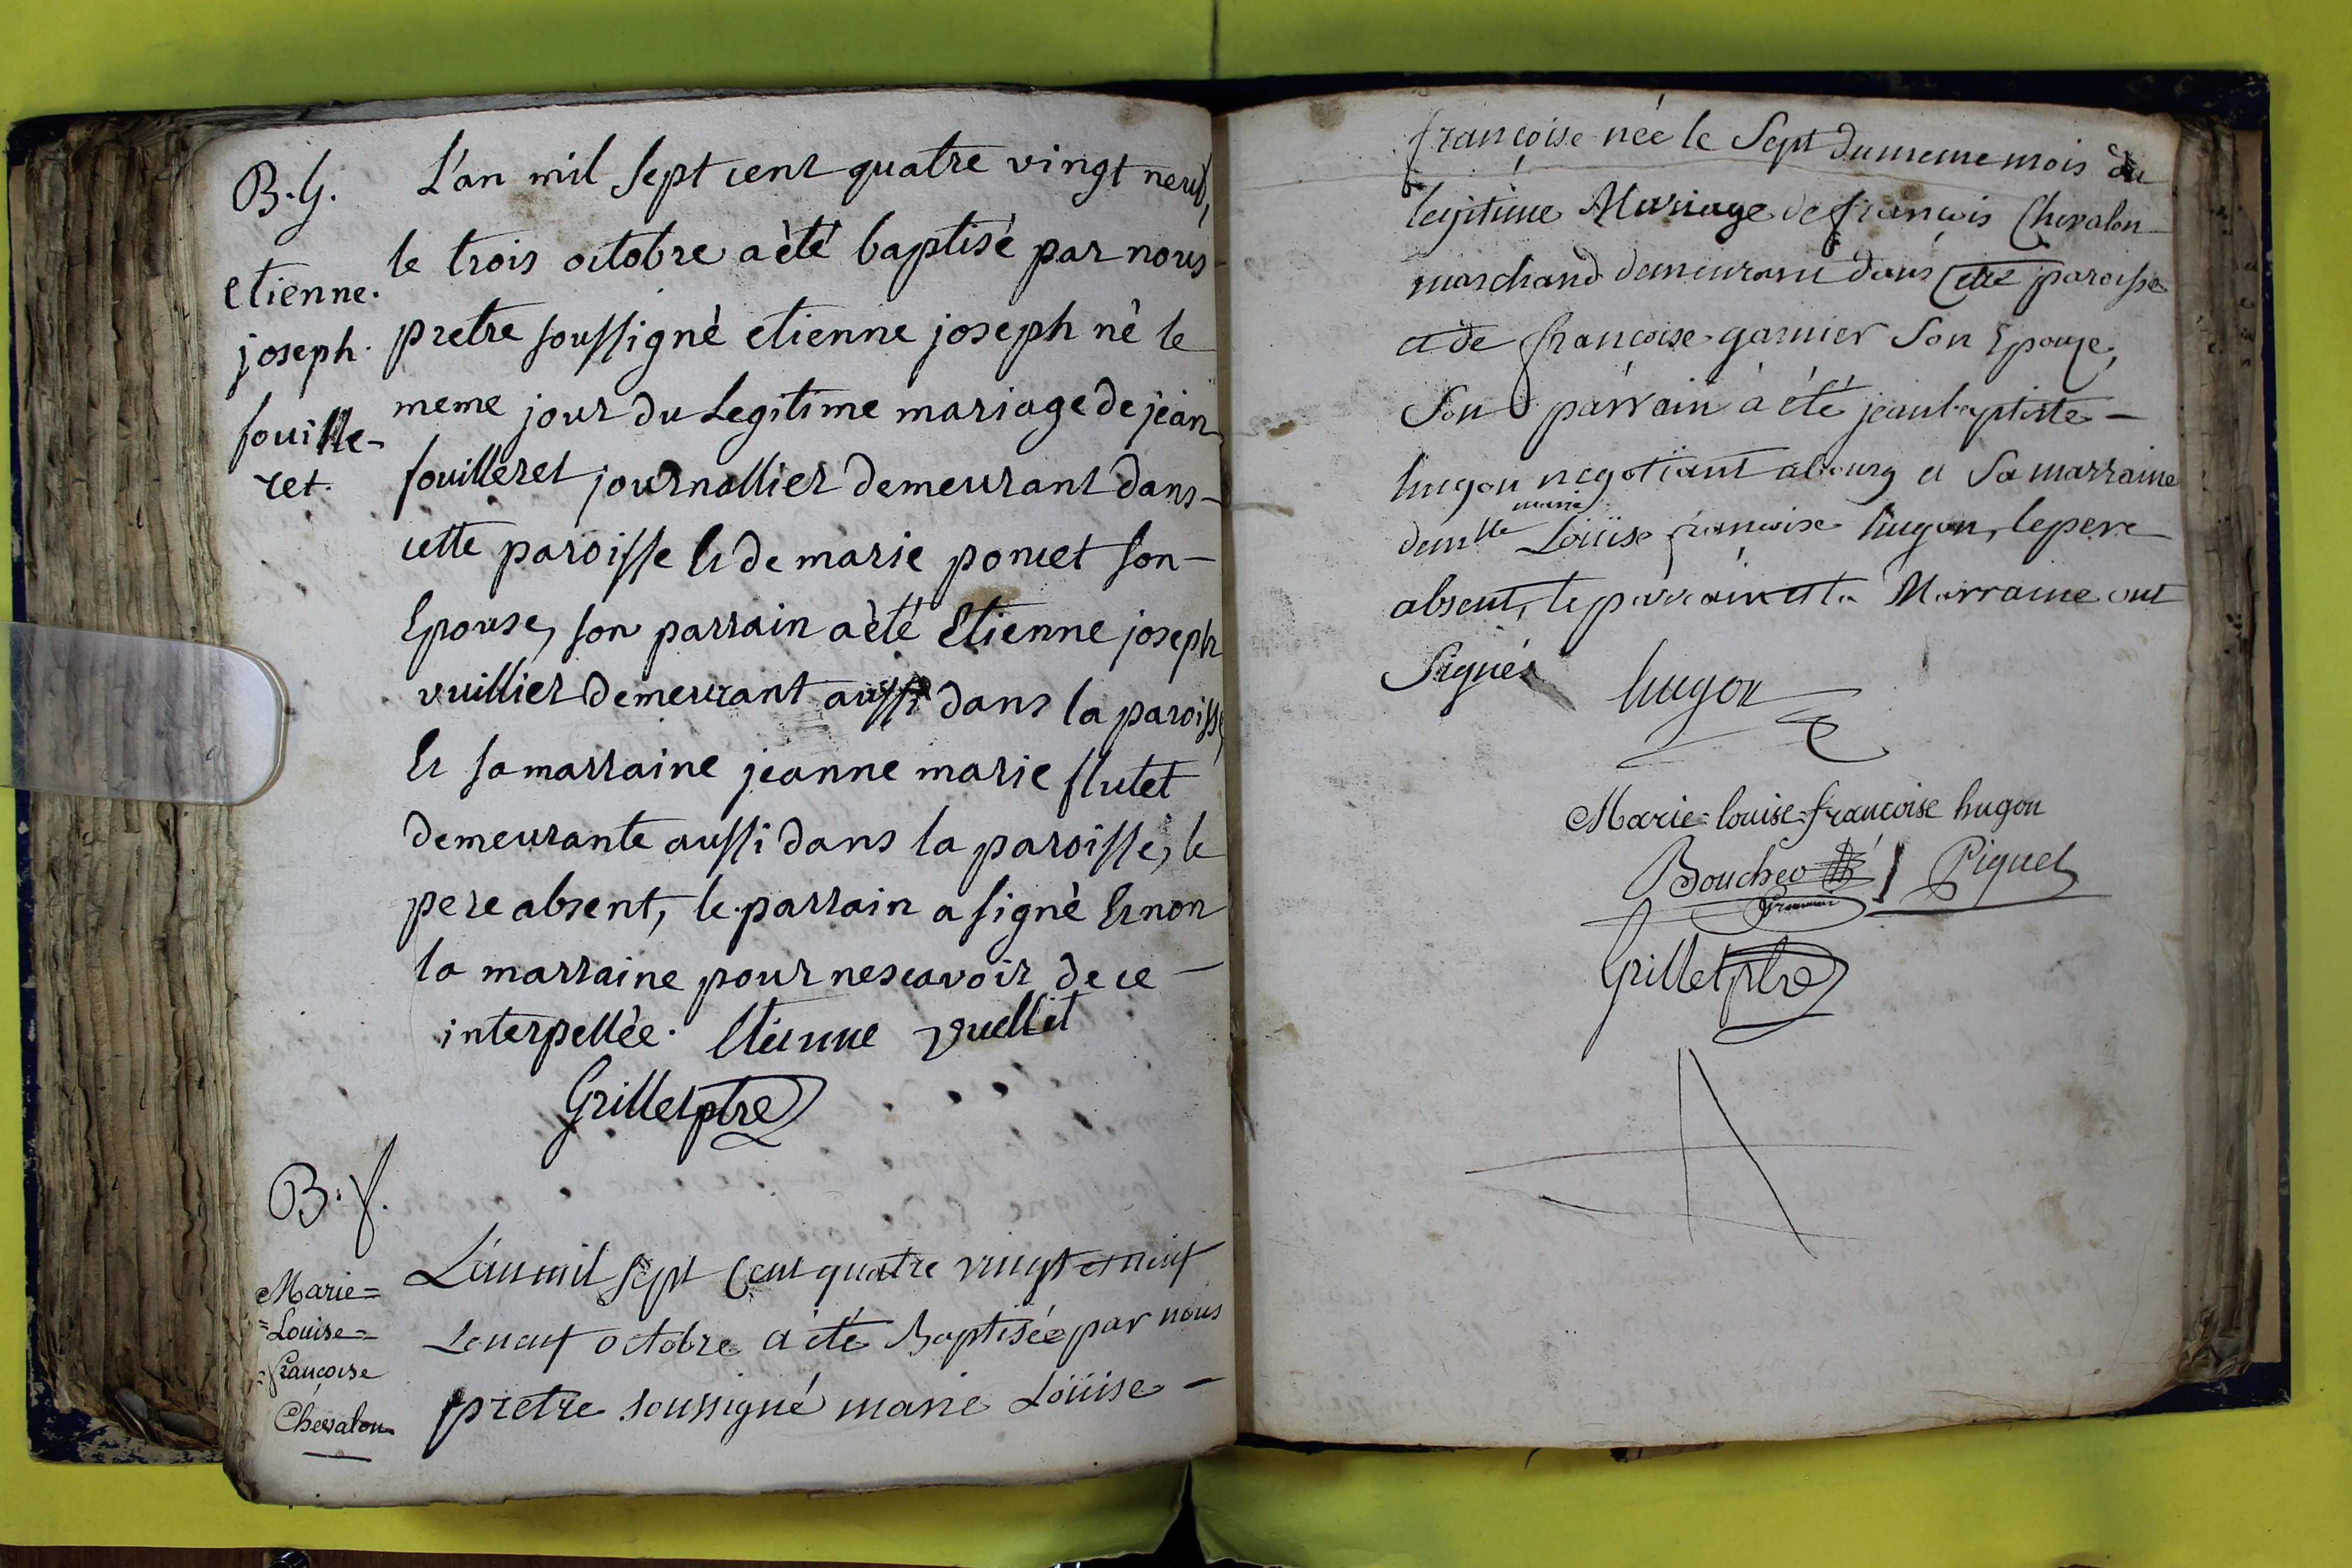 B.G.
etienne.
joseph.
fouille-
ret.
L'an mil sept cent quatre vingt neuf,
le trois octobre a èté baptisé par nous
pretre soussigné etienne joseph né le
meme jour du Legitime mariage de jean
fouilleret journallier demeurant dans-
cette paroisse Et de marie poncet son-
Epouse, son parrain a èté Etienne joseph
vuillier demeurant aussi dans la paroisse
Et sa marraine jeanne marie flutet
demeurante aussi dans la paroisse, le
pere absent, le parrain a signé Et non
la marraine pour ne scavoir de ce -
interpellée. Etienne vuellet
Grillet ptre
B.f.
Marie=
=Louise=
=francoise
Chevalon
L'an mil sept Cent quatre vingt et neuf
Le neuf octobre a été Baptisée par nous
pretre soussigné marie Loüise -
françoise née le Sept du meme mois du
legitime Mariage de françois Chevalon
marchand demeurant dans Cette paroisse
et de françoise garnier Son Epouze,
Son parrain à été jean baptiste -
hugon negotiant a bourg et Sa marraine
marie
demlle Loüise francoise hugon, le pere
absent, le parrain et la Marraine ont
Signés hugon
Marie=louise=francoise hugon
Piguet
Grillet ptre